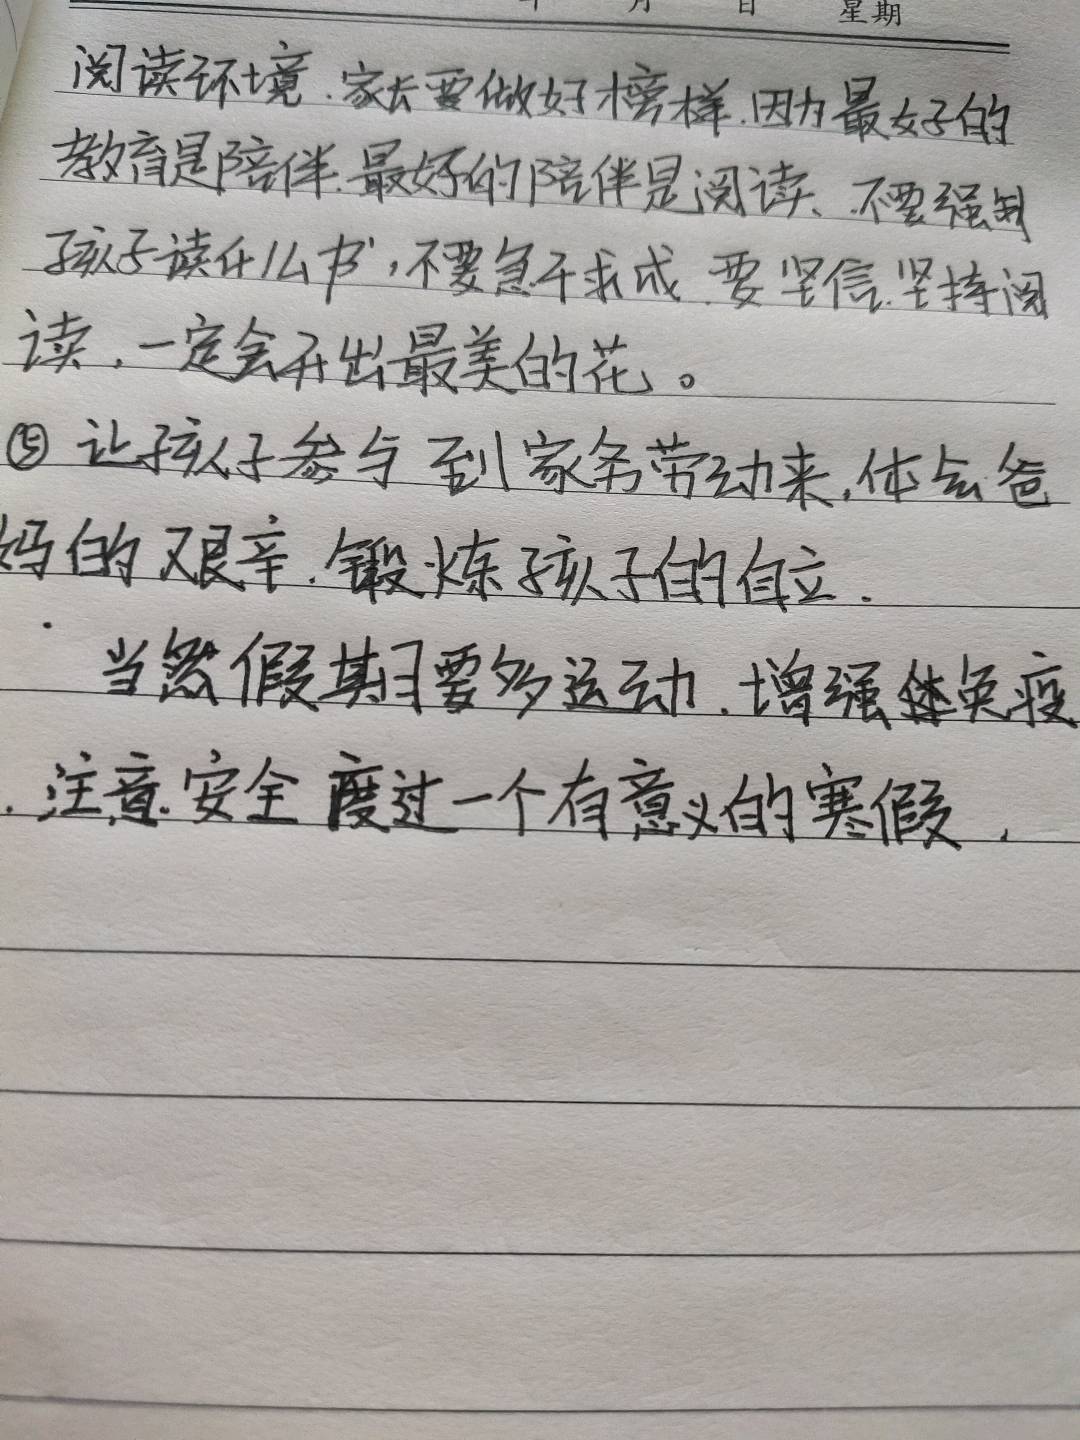 年 月 日 星期
阅读环境.家长要做好榜样.因为最好的
教育是陪伴.最好的陪伴是阅读、.不要强制
孩子读什么书,不要急于求成.要坚信.坚持阅
读,一定会开出最美的花。
⑤ 让孩子参与到家务劳动来,体会爸
妈的艰辛.锻炼孩子的自立.
当然假期要多运动.增强体免疫
.注意.安全度过一个有意义的寒假.